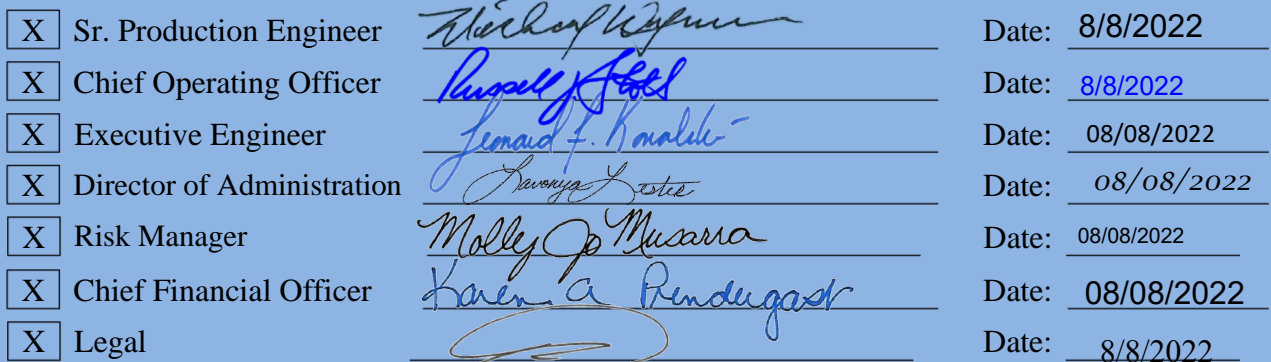 X Sr. Production Engineer Michael W Date: 8/8/2022
X Chief Operating Officer Russell J. Date: 8/8/2022
X Executive Engineer Leonard F. Date: 08/08/2022
X Director of Administration Lavonya Lester Date: 08/08/2022
X Risk Manager Molly Jo Musarra Date: 08/08/2022
X Chief Financial Officer Karen A Prendergast Date: 08/08/2022
X Legal Date: 8/8/2022